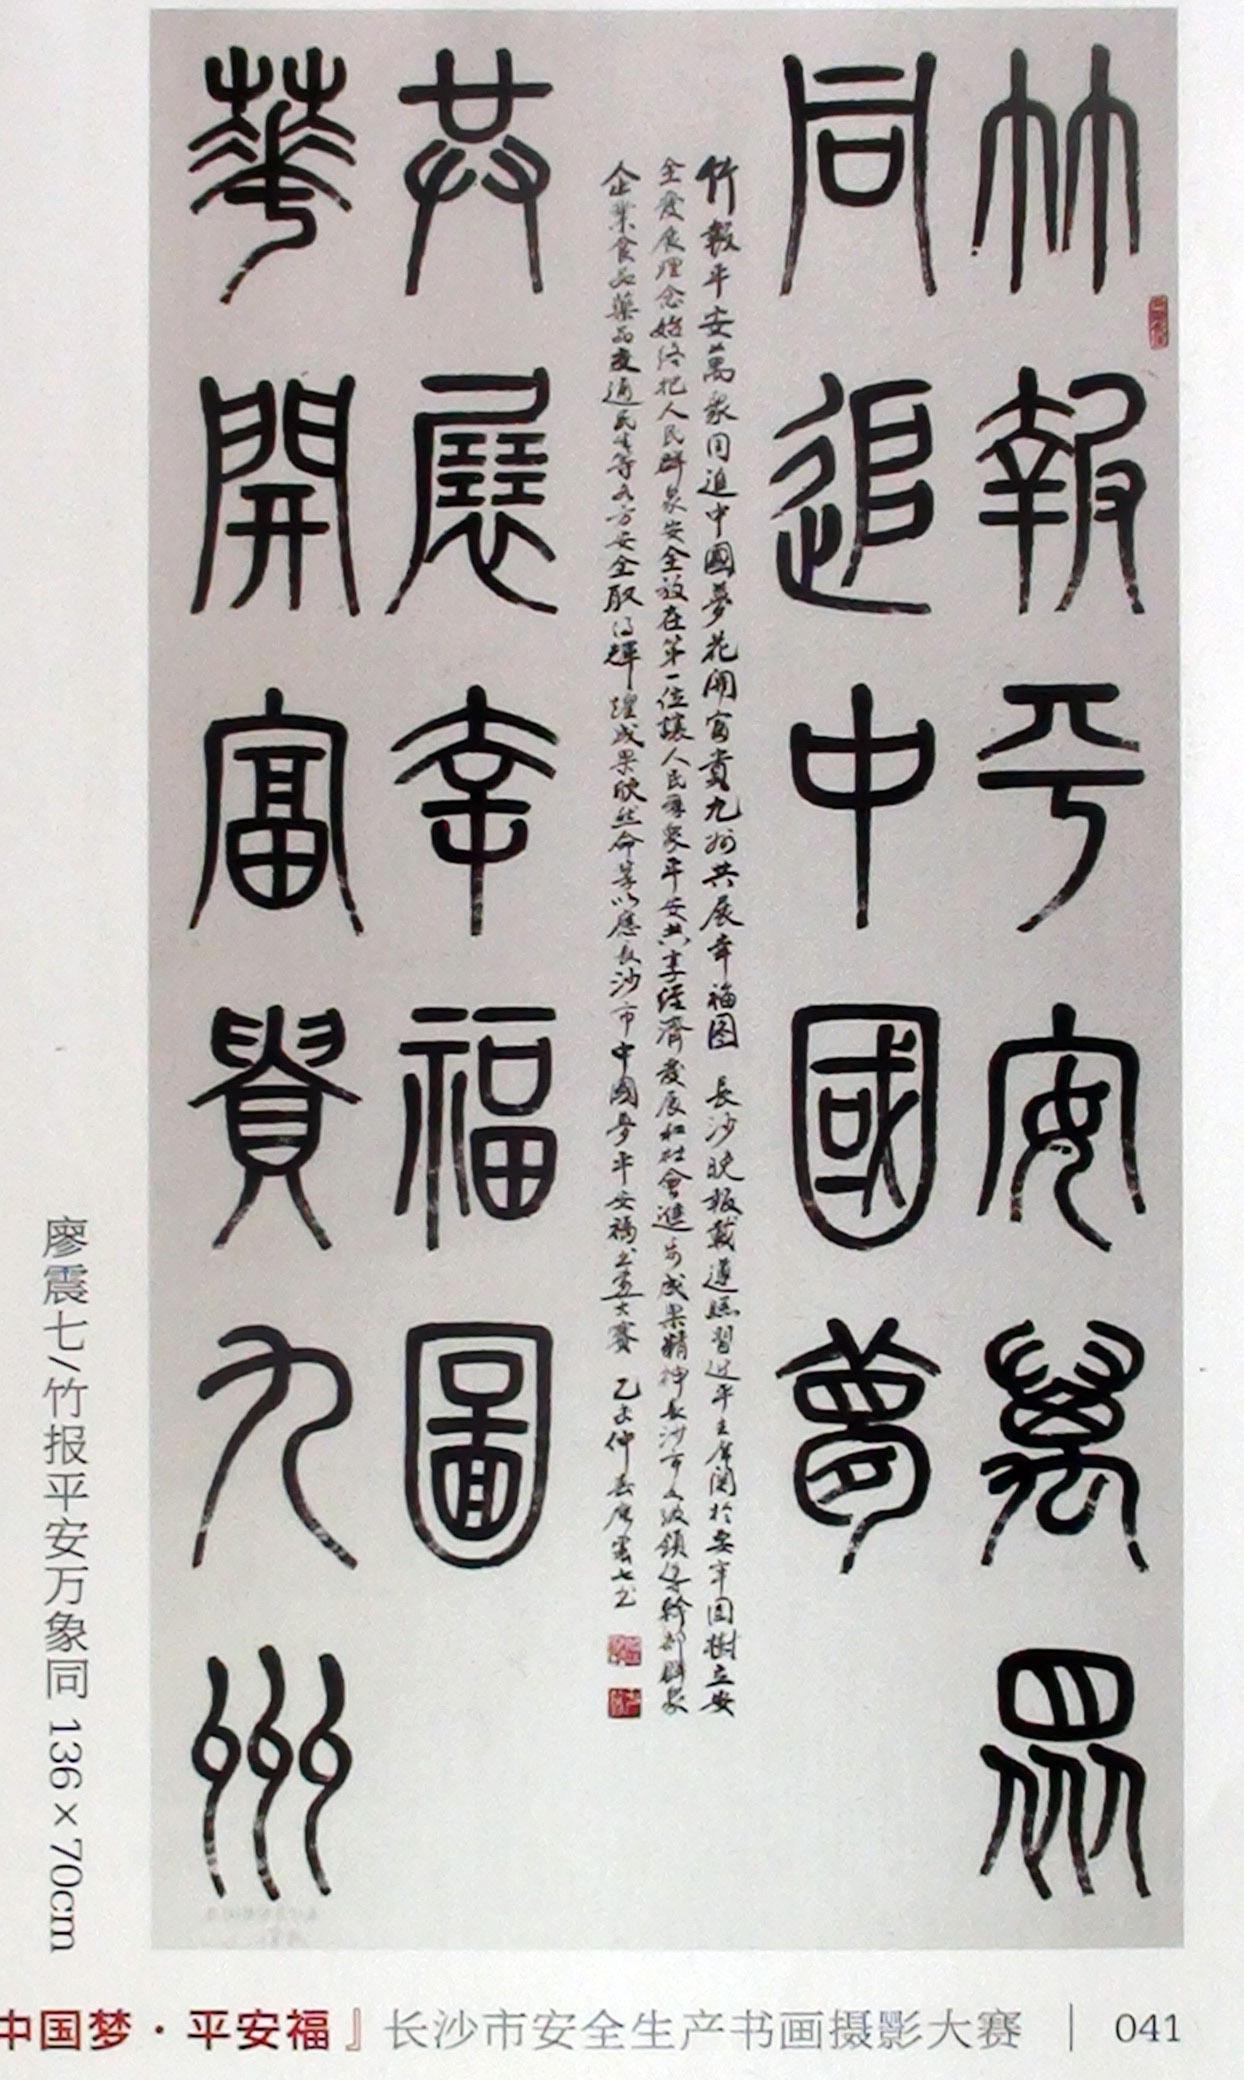 竹報平安萬眾
同追中國夢
竹報平安萬眾同追中國夢花開富貴九州共展幸福图 長沙晚报載遵照習近平主席関於要牢固樹立安
全發展理念始终把人民群眾安全放在第一位讓人民羣眾平安共享经濟發展和社會進步成果精神長沙市各级領導幹部群眾
企業食品藥品交通民生等各方安全取得輝煌成果欣然命筆以應長沙市中國夢平安福书画大賽 乙未仲春廖震七书
華開富貴九州
共展幸福圖
廖震七/竹报平安万象同 136×70cm
中国梦·平安福』长沙市安全生产书画摄影大赛 | 041